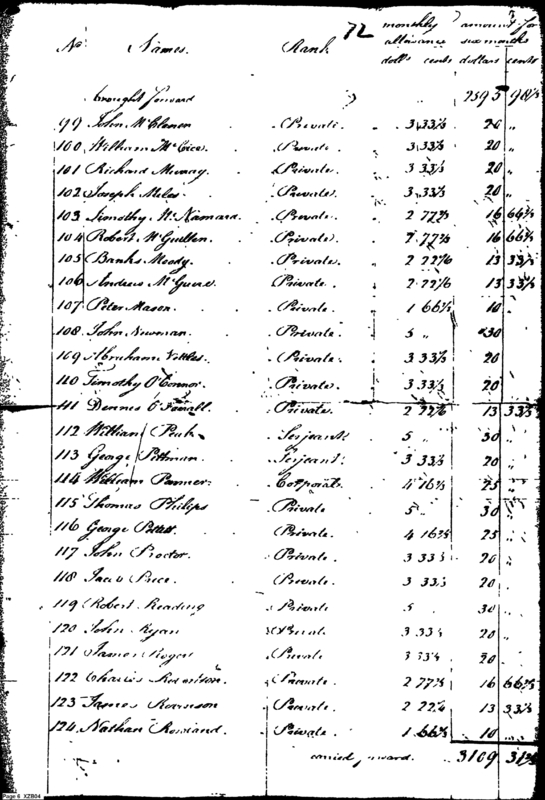 72
No Names. Rank. monthly allowance dolls cents amount for six months dollars cents
brought forward 2595 98 1/3
99 John McClemen Private. 3 33 1/3 20 "
100 William McCice Private. 3 33 1/3 20 "
101 Richard Murray Private. 3 33 1/3 20 "
102 Joseph Miles Private. 3 33 1/3 20 "
103 Timothy McNamara. Private. 2 77 2/3 16 66 2/3
104 Robert McQuillen Private. 2 77 2/3 16 66 2/3
105 Banks Moody. Private. 2 22 2/6 13 33 1/3
106 Andrew McGuire Private. 2 22 2/6 13 33 1/3
107 Peter Mason. Private. 1 66 2/3 10 "
108 John Newman. Private. 5 " 30
109 Abraham Nettles. Private. 3 33 1/3 20
110 Timothy O'Connor. Private. 3 33 1/3 20
111 Dennis O'Farrall. Private. 2 22 2/6 13 33 1/3
112 William Serjeant 5 " 30 "
113 George Pittman. Serjeant. 3 33 1/3 20 "
114 William Corporal. 4 16 2/3 25 "
115 Thomas Philips Private 5 " 30 "
116 George Private. 4 16 2/3 25 "
117 John Proctor. Private. 3 33 1/3 20 "
118 Jacob Price. Private. 3 33 1/3 20 "
119 Robert Reading Private 5 30
120 John Ryan Private 3 33 1/3 20 "
121 James Roger Private 3 33 1/3 20
122 Charles Robinson. Private. 2 77 2/3 16 66 2/3
123 James Private. 2 22 2/6 13 33 1/3
124 Nathan Rowland Private. 1 66 2/3 10 "
carried forward. 3109 31
Page 6 XZB04